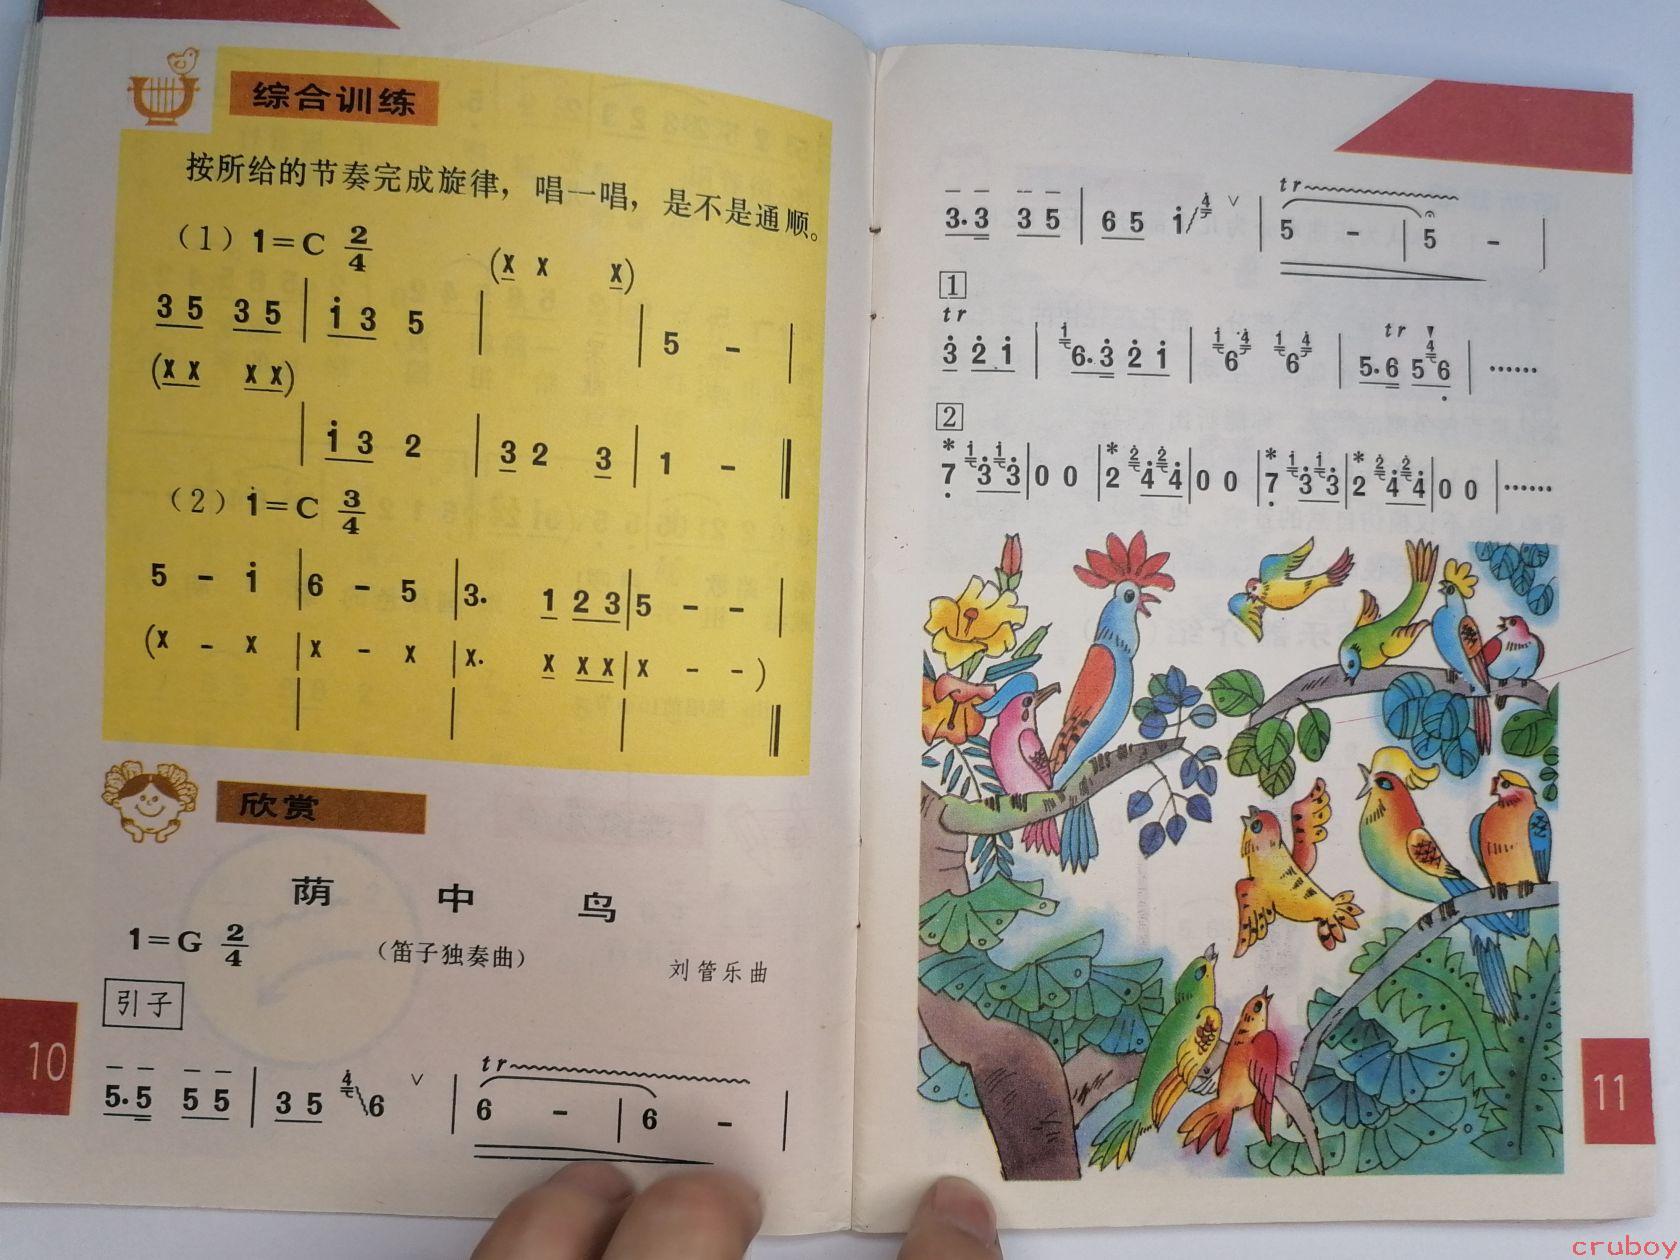 综合训练
按所给的节奏完成旋律，唱一唱，是不是通顺。
（1）1=C 2/4
(X X X)
3 5 3 5 | i 3 5 | | 5 - |
(X X X X)
| i 3 2 | 3 2 3 | 1 - ‖
（2）i=C 3/4
5 - i | 6 - 5 | 3. 1 2 3 | 5 - - |
(X - X | X - X | X. X X X | X - - )
欣赏
荫中鸟
1=G 2/4 （笛子独奏曲） 刘管乐曲
引子
5. 5 5 5 | 3 5 4 6 ∨ | tr 6 - | 6 - |
10
3. 3 3 5 | 6 5 i 4 ∨ | tr 5 - | 5 - |
1
tr tr
3 2 i | 1 6. 3 2 i | 1 6 4 1 6 4 | 5. 6 5 4 6 | ……
2
* 7 1 3 1 3 | 0 0 | * 2 2 4 2 4 | 0 0 | * 7 1 3 1 3 | * 2 2 4 2 4 | 0 0 | ……
11
cruboy